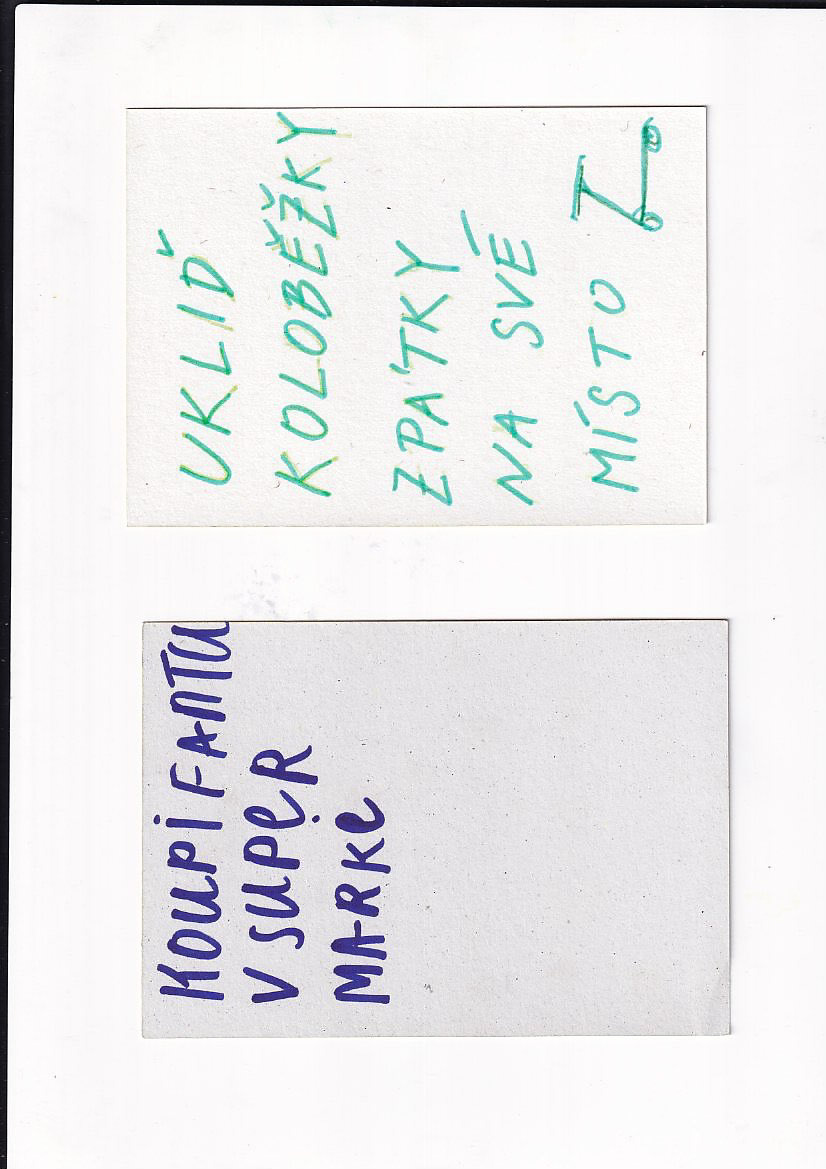 UKLIĎ
KOLOBĚŽKY
ZPÁTKY
NA SVÉ
MÍSTO
KOUPi FANTU
V SUPeR
MARKe